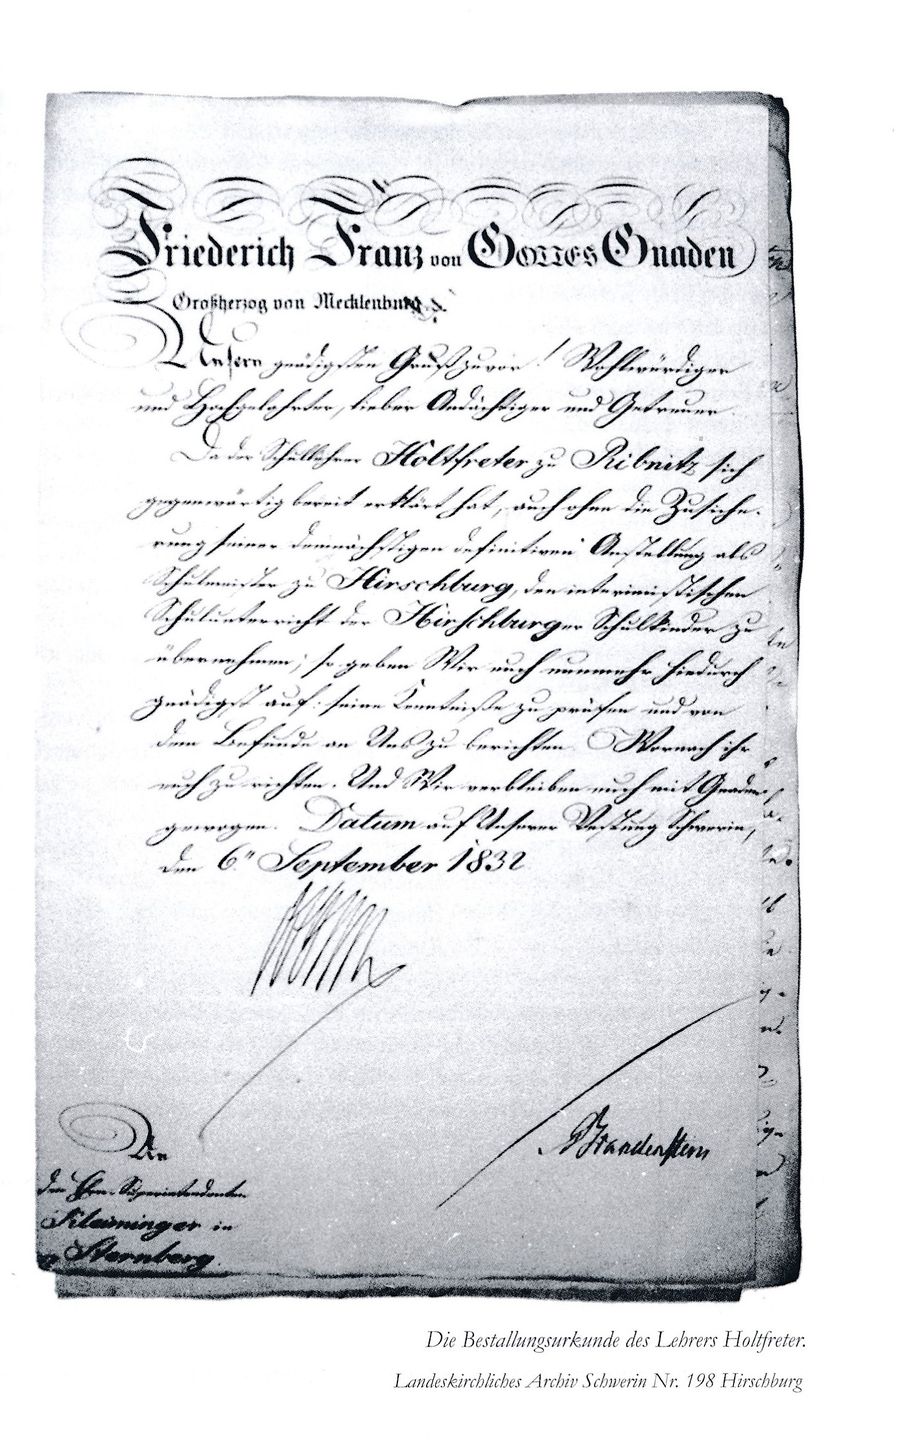 Friederich Franz von GOTTES Gnaden
Großherzog von Mecklenburg
Unsern gnädigsten Gruß zuvor! Wohlwürdiger
und Hochgelahrter, lieber Andächtiger und Getreuer.
Da der Schullehrer Holtfreter zu Ribnitz sich
gegenwärtig bereit erklärt hat, auch ohne die Zusiche-
rung seiner demnächstigen definitiven Anstellung als
Schulmeister zu Hirschburg, den interimistischen
Schulunterricht der Hirschburger Schulkinder zu
übernehmen; so geben Wir euch nunmehr hiedurch
gnädigst auf: seine Kenntniße zu prüfen und von
dem Befunde an Uns zu berichten. Wornach ihr
euch zu richten. Und Wir verbleiben euch mit Gnaden
gewogen. Datum auf Unserer Vestung Schwerin,
den 6. September 1832
Brandenstein
An
den Ehrn. Superintendenten
Kleiminger in
Sternberg.
Die Bestallungsurkunde des Lehrers Holtfreter.
Landeskirchliches Archiv Schwerin Nr. 198 Hirschburg